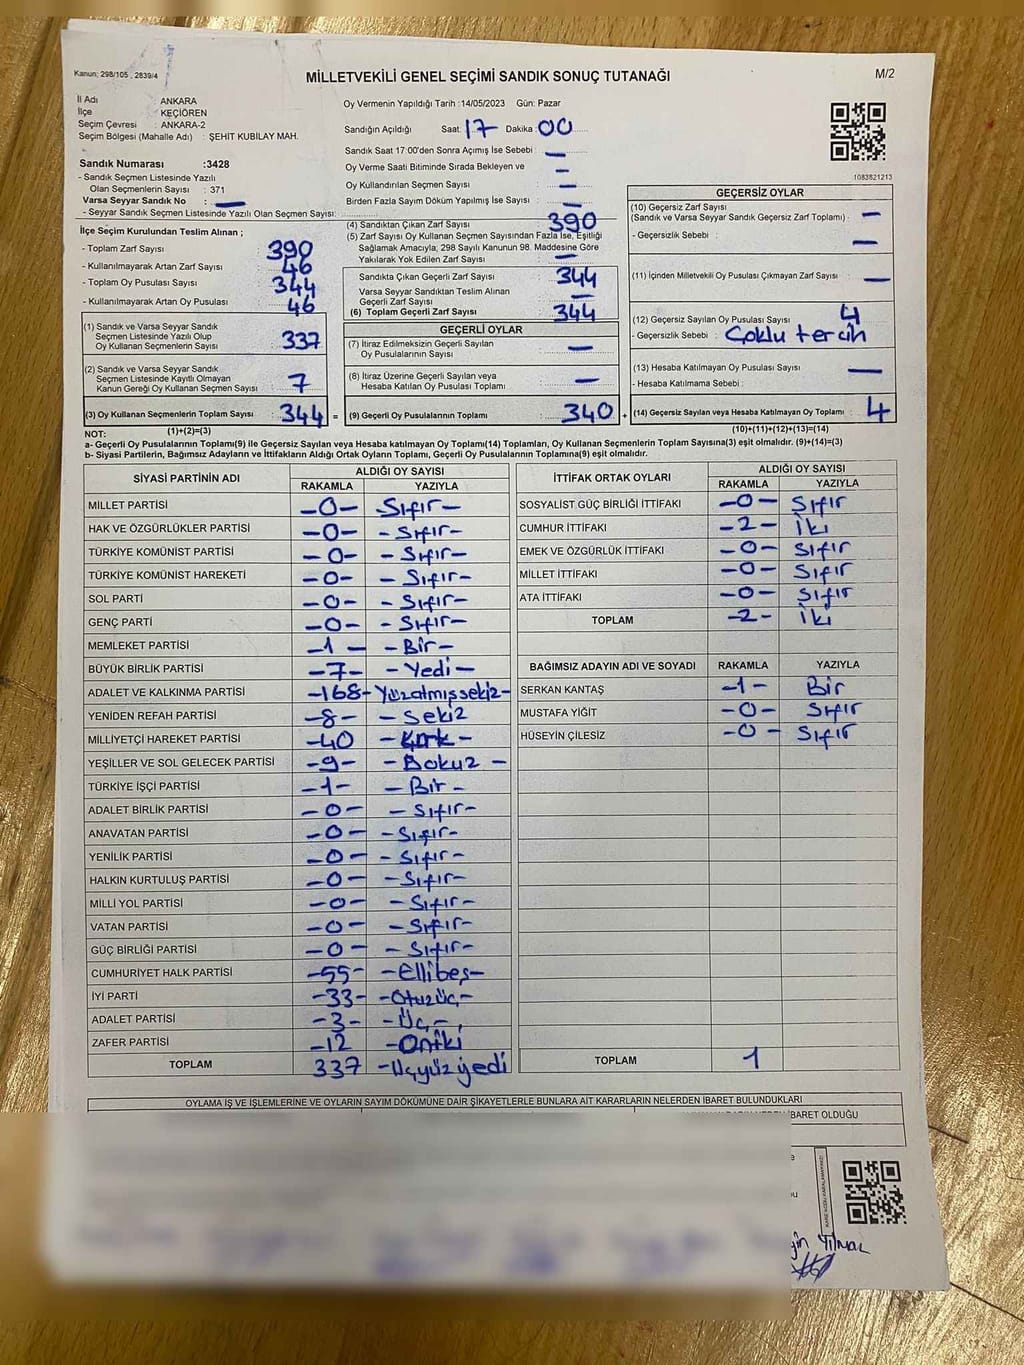 Kanun: 298/105 , 2839/4
MİLLETVEKİLİ GENEL SEÇİMİ SANDIK SONUÇ TUTANAĞI
M/2
İl Adı : ANKARA
İlçe : KEÇİÖREN
Seçim Çevresi : ANKARA-2
Seçim Bölgesi (Mahalle Adı) : ŞEHİT KUBİLAY MAH.
Sandık Numarası :3428
- Sandık Seçmen Listesinde Yazılı
Olan Seçmenlerin Sayısı : 371
Varsa Seyyar Sandık No : —
- Seyyar Sandık Seçmen Listesinde Yazılı Olan Seçmen Sayısı:
Oy Vermenin Yapıldığı Tarih :14/05/2023 Gün: Pazar
Sandığın Açıldığı Saat: 17 Dakika : 00
Sandık Saat 17:00'den Sonra Açımış İse Sebebi : —
Oy Verme Saati Bitiminde Sırada Bekleyen ve : —
Oy Kullandırılan Seçmen Sayısı : —
Birden Fazla Sayım Döküm Yapılmış İse Sayısı : —
1083821213
İlçe Seçim Kurulundan Teslim Alınan ;
- Toplam Zarf Sayısı : 390
- Kullanılmayarak Artan Zarf Sayısı : 46
- Toplam Oy Pusulası Sayısı : 344
- Kullanılmayarak Artan Oy Pusulası : 46
(1) Sandık ve Varsa Seyyar Sandık
Seçmen Listesinde Yazılı Olup
Oy Kullanan Seçmenlerin Sayısı : 337
(2) Sandık ve Varsa Seyyar Sandık
Seçmen Listesinde Kayıtlı Olmayan
Kanun Gereği Oy Kullanan Seçmen Sayısı : 7
(3) Oy Kullanan Seçmenlerin Toplam Sayısı : 344 =
(1)+(2)=(3)
(4) Sandıktan Çıkan Zarf Sayısı : 390
(5) Zarf Sayısı Oy Kullanan Seçmen Sayısından Fazla İse, Eşitliği
Sağlamak Amacıyla; 298 Sayılı Kanunun 98. Maddesine Göre
Yakılarak Yok Edilen Zarf Sayısı : —
Sandıkta Çıkan Geçerli Zarf Sayısı : 344
Varsa Seyyar Sandıktan Teslim Alınan
Geçerli Zarf Sayısı : —
(6) Toplam Geçerli Zarf Sayısı : 344
GEÇERLİ OYLAR
(7) İtiraz Edilmeksizin Geçerli Sayılan
Oy Pusulalarının Sayısı : —
(8) İtiraz Üzerine Geçerli Sayılan veya
Hesaba Katılan Oy Pusulası Toplamı : —
(9) Geçerli Oy Pusulalarının Toplamı : 340 +
GEÇERSİZ OYLAR
(10) Geçersiz Zarf Sayısı
(Sandık ve Varsa Seyyar Sandık Geçersiz Zarf Toplamı) : —
- Geçersizlik Sebebi : —
(11) İçinden Milletvekili Oy Pusulası Çıkmayan Zarf Sayısı : —
(12) Geçersiz Sayılan Oy Pusulası Sayısı : 4
- Geçersizlik Sebebi : Çoklu tercih
(13) Hesaba Katılmayan Oy Pusulası Sayısı : —
- Hesaba Katılmama Sebebi :
(14) Geçersiz Sayılan veya Hesaba Katılmayan Oy Toplamı : 4
(10)+(11)+(12)+(13)=(14)
NOT:
a- Geçerli Oy Pusulalarının Toplamı(9) ile Geçersiz Sayılan veya Hesaba katılmayan Oy Toplamı(14) Toplamları, Oy Kullanan Seçmenlerin Toplam Sayısına(3) eşit olmalıdır. (9)+(14)=(3)
b- Siyasi Partilerin, Bağımsız Adayların ve İttifakların Aldığı Ortak Oyların Toplamı, Geçerli Oy Pusulalarının Toplamına(9) eşit olmalıdır.
SİYASİ PARTİNİN ADI ALDIĞI OY SAYISI
RAKAMLA YAZIYLA
MİLLET PARTİSİ -0- Sıfır-
HAK VE ÖZGÜRLÜKLER PARTİSİ -0- -Sıfır-
TÜRKİYE KOMÜNİST PARTİSİ -0- -Sıfır-
TÜRKİYE KOMÜNİST HAREKETİ -0- -Sıfır-
SOL PARTİ -0- -Sıfır-
GENÇ PARTİ -0- -Sıfır-
MEMLEKET PARTİSİ -1- -Bir-
BÜYÜK BİRLİK PARTİSİ -7- -Yedi-
ADALET VE KALKINMA PARTİSİ -168- Yüzatmışsekiz-
YENİDEN REFAH PARTİSİ -8- -Sekiz
MİLLİYETÇİ HAREKET PARTİSİ -40 -Kırk-
YEŞİLLER VE SOL GELECEK PARTİSİ -9- -Dokuz-
TÜRKİYE İŞÇİ PARTİSİ -1- -Bir-
ADALET BİRLİK PARTİSİ -0- -Sıfır-
ANAVATAN PARTİSİ -0- -Sıfır-
YENİLİK PARTİSİ -0- -Sıfır-
HALKIN KURTULUŞ PARTİSİ -0- -Sıfır-
MİLLİ YOL PARTİSİ -0- -Sıfır-
VATAN PARTİSİ -0- -Sıfır-
GÜÇ BİRLİĞİ PARTİSİ -0- -Sıfır-
CUMHURİYET HALK PARTİSİ -55- -Ellibeş-
İYİ PARTİ -33- -Otuzüç-
ADALET PARTİSİ -3- -Üç-
ZAFER PARTİSİ -12 -Oniki
TOPLAM 337 -Üçyüzyedi
İTTİFAK ORTAK OYLARI ALDIĞI OY SAYISI
RAKAMLA YAZIYLA
SOSYALİST GÜÇ BİRLİĞİ İTTİFAKI -0- Sıfır
CUMHUR İTTİFAKI -2- İki
EMEK VE ÖZGÜRLÜK İTTİFAKI -0- Sıfır
MİLLET İTTİFAKI -0- Sıfır
ATA İTTİFAKI -0- Sıfır
TOPLAM -2- İki
BAĞIMSIZ ADAYIN ADI VE SOYADI RAKAMLA YAZIYLA
SERKAN KANTAŞ -1- Bir
MUSTAFA YİĞİT -0- Sıfır
HÜSEYİN ÇİLESİZ -0- Sıfır
TOPLAM 1
OYLAMA İŞ VE İŞLEMLERİNE VE OYLARIN SAYIM DÖKÜMÜNE DAİR ŞİKAYETLERLE BUNLARA AİT KARARLARIN NELERDEN İBARET BULUNDUKLARI
İBARET OLDUĞU
Yılmaz